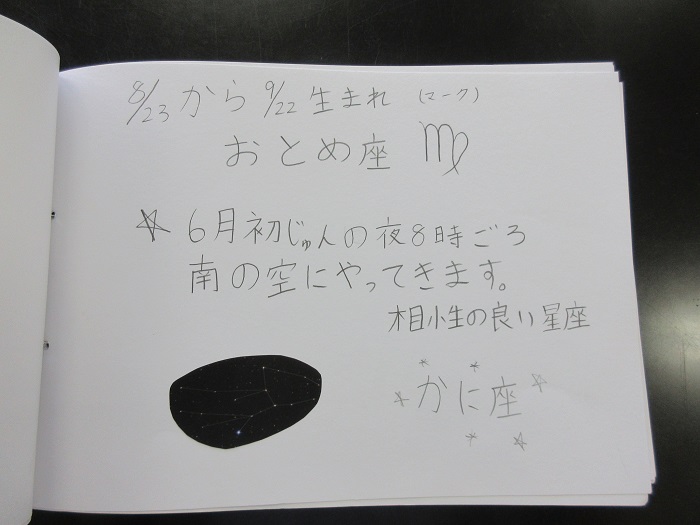 8/23から9/22生まれ (マーク)
おとめ座 ♍
☆ 6月初じゅんの夜8時ごろ
南の空にやってきます。
相性の良い星座
かに座